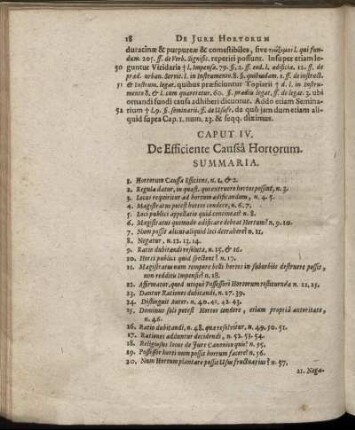 18 DE JURE HORTORUM
duracinæ & purpureæ & comestibiles, sive l. qui fundum. 205. ff. de Verb. Signific. reperiri possunt. Insuper etiam le-
50 guntur Viridaria † l. Impensa. 79. §. 2. ff. eod. l. ædificia. 12. ff. de
præd. urban. Servit. l. in Instrumento. 8. §. quibusdam. 1. ff. de instruct.
51 & Instrum. legat. quibus præficiuntur Topiarii † d. l. in Instru-
mento 8. & l. cum quæratur. 60. §. prædia legat. ff. de legat. 3. ubi
ornandi fundi causâ adhiberi dicuntur. Addo etiam Semina-
52 rium † l. 9. §. seminarii. ff. de Usufr. de quo jam dum etiam ali-
quid supra Cap. 1. num. 23. & seqq. diximus.
CAPUT IV.
De Efficiente Caussâ Hortorum.
SUMMARIA.
1. Hortorum Caussa Efficiens. n. 1. & 2.
2. Regula datur, in quæst. qui extruere hortos possint, n. 3.
3. Locus requiritur ad hortum ædificandum, n. 4. 5.
4. Magistratus potest hortos condere, n. 6. 7.
5. Loci publici appellatio quid contineat? n. 8.
6. Magistratus quomodo ædificare debeat Hortum? n. 9. 10.
7. Num possit alicui aliquid loci detrahere? n. 11.
8. Negatur, n. 12. 13. 14.
9. Ratio dubitandi resoluta, n. 15. & 16.
10. Horti publici quid spectent? n. 17.
11. Magistratus num recuperet belli hortos in suburbiis destruere possit,
non reddito Impensis? n. 18.
12. Affirmatur, quod utiqui Possessori Hortorum restituenda n. 22, 23.
13. Dantur Rationes dubitandi, n. 27. 39.
14. Distinguit Autor. n. 40. 41. 42. 43.
15. Dominus soli potest Hortos condere, etiam propriâ autoritate,
n. 46.
16. Ratio dubitandi, n. 48. quæ resolvitur, n. 49. 50. 51.
17. Rationes adduntur decidendi, n. 52. 53. 54.
18. Religiosus locus de Jure Canonico quis? n. 55.
19. Possessor horti num possit hortum facere? n. 56.
20. Num Hortum plantare possit Usufructuarius? n. 57.
21. Nega-